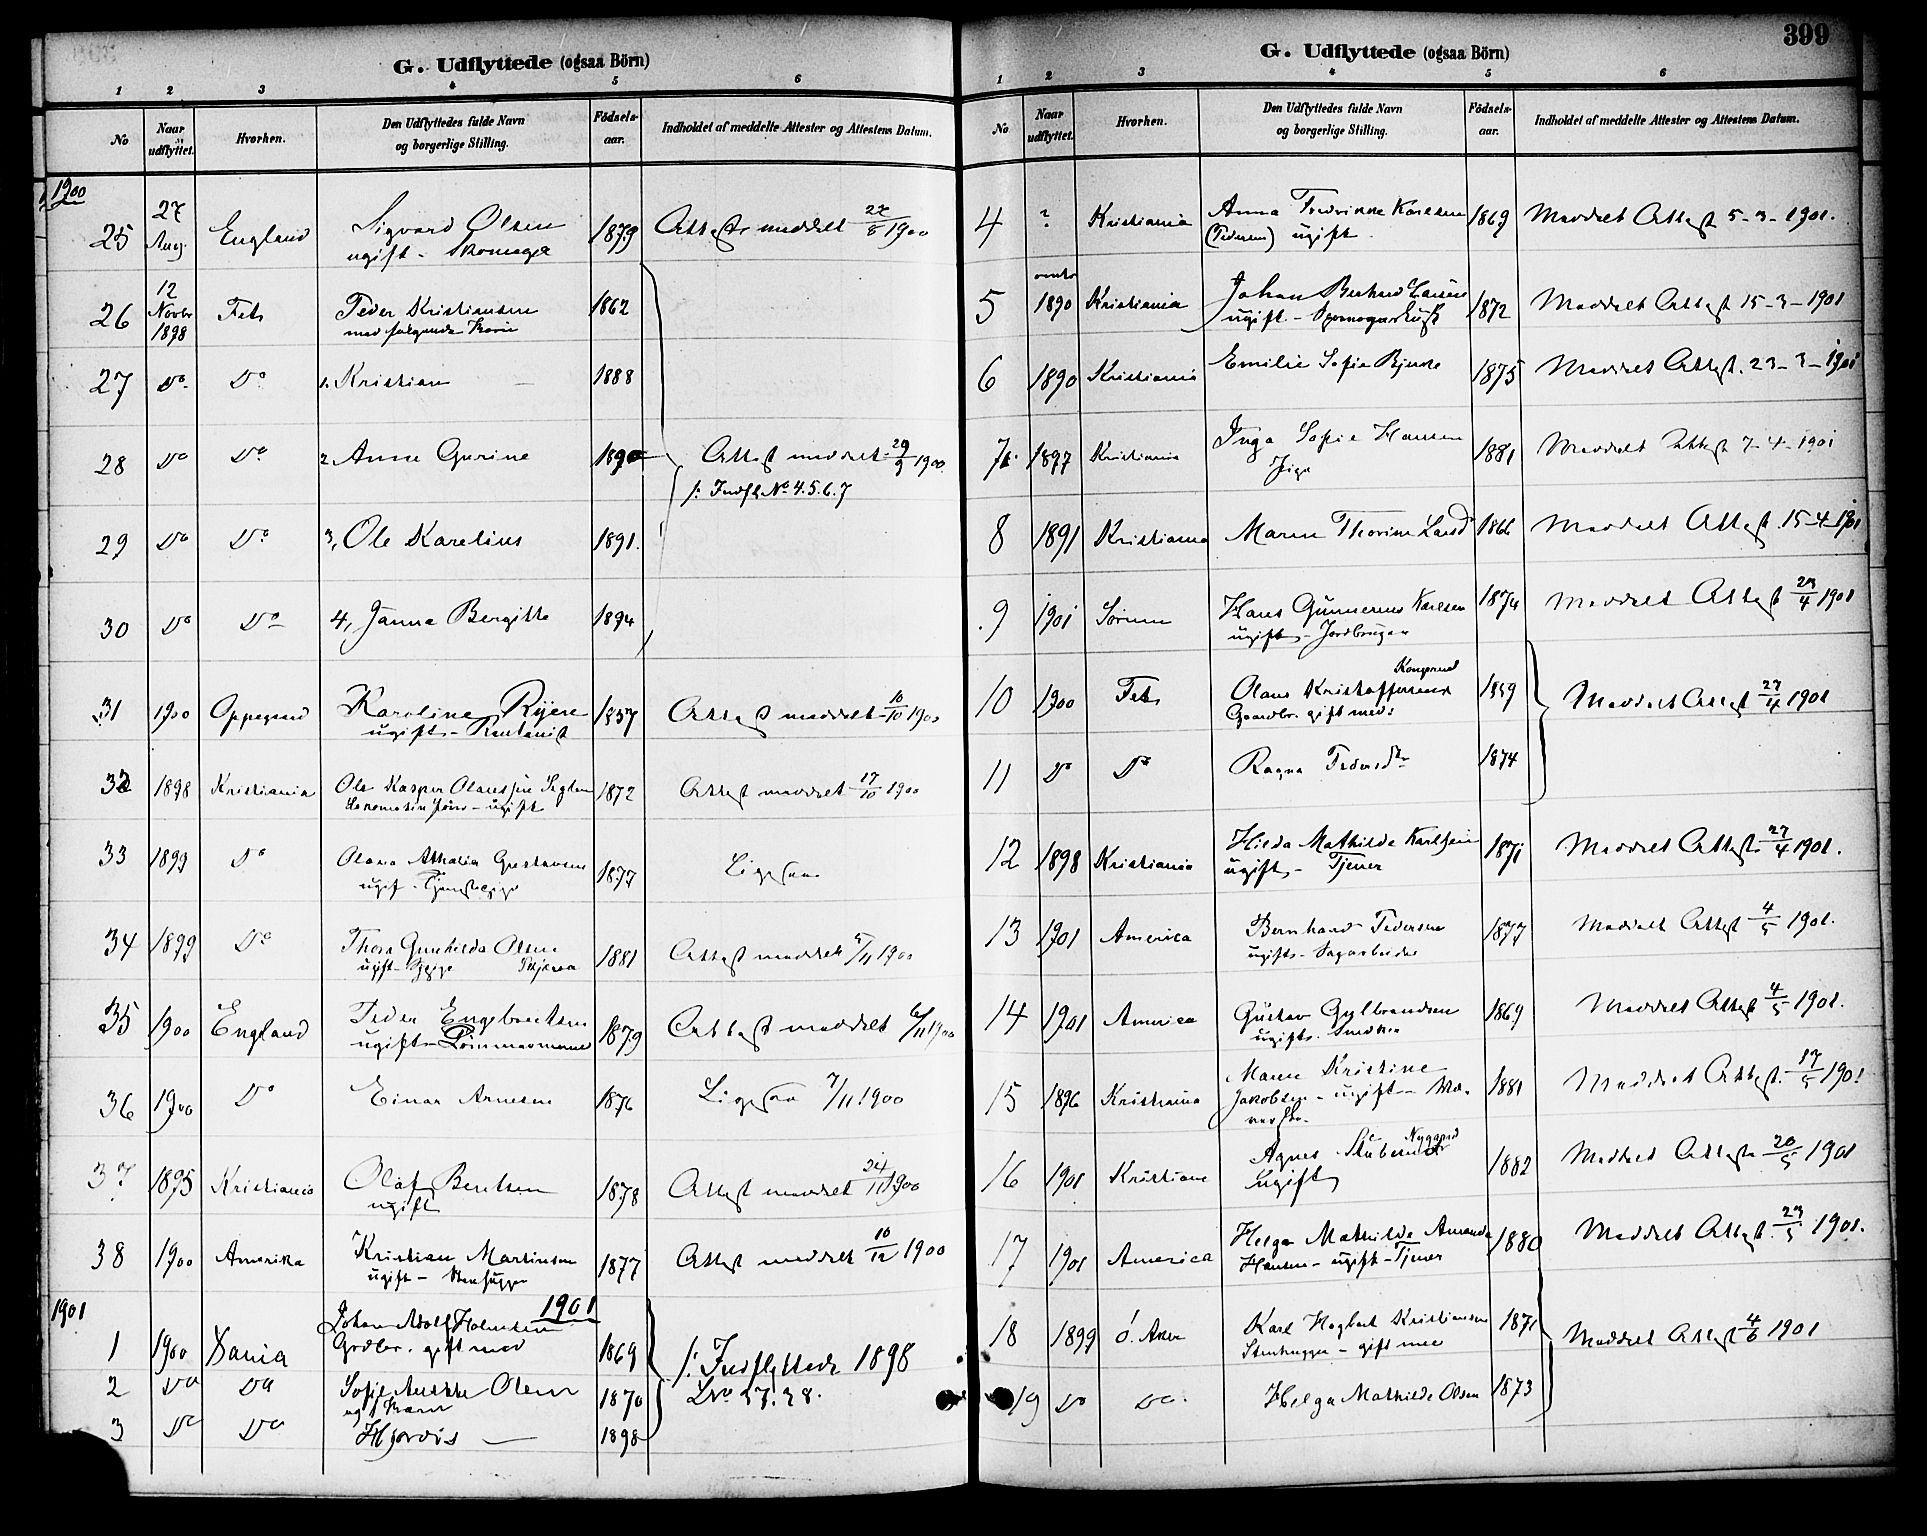 G. Udflyttede (ogsaa Börn)
1 2 3 4 5 6
No Naar udflyttet. Hvorhen. Den Udflyttedes fulde Navn og borgerlige Stilling. Födsels-aar. Indholdet af meddelte Attester og Attestens Datum.
1900
25 27 Aug. England Sigvard Olsen 1879 Attest meddelt 27/8 1900
ugift - Skomager
26 12 Novbr 1898 Fet Peder Kristiansen 1862
med følgende Børn
27 Do Do 1. Kristian — 1888
28 Do Do 2. Anne Gurine 1890 Attest meddelt 29/9 1900
/: Indfl. No 4.5.6.7
29 Do Do 3, Ole Karelius 1891.
30 Do Do 4, Janna Bergitte 1894
31 1900 Oppegaard Karoline Ryen 1857 Attest meddelt 10/10 1900
ugift -
32 1898 Kristiania Ole Kasper Olaussen 1872 Attest meddelt 17/10 1900
- ugift
33 1899 Do Olava Athalia Gustavsen 1877 Ligesaa
ugif. Tjenestepige
34 1899 Do Thora Gunhilda Olsen 1881 Attest meddelt 5/11 1900
ugift - Pige
35 1900 England Peder Engebretsen 1879 Attest meddelt 6/11 1900
ugift - Tømmermand
36 1900 Do Einar Arnesen 1876 Ligesaa 7/11 1900
37 1895 Kristiania Olaf Berntsen 1878 Attest meddelt 24/11 1900
ugift
38 1900 Amerika Kristian Martinsen 1877 Attest meddelt 10/12 1900
ugift - Stenhugger
1901 1901
1 1900 Dania Johan Adolf Holmsen 1869 /: Indflyttede 1898
Grdbr. gift med
2 Do Do Sofie Olsen 1870 LNo 27.28.
og Barn
3 Do Do Hjørdis — 1898
399
G. Udflyttede (ogsaa Börn)
1 2 3 4 5 6
No Naar udflyttet. Hvorhen. Den Udflyttedes fulde Navn og borgerlige Stilling. Födsels-aar. Indholdet af meddelte Attester og Attestens Datum.
4 ? Kristiania Anna Fredrikke Karlsen 1869 Meddelt Attest 5-3-1901.
(Pedersen) ugift
5 omtr 1890 Kristiania Johan Bernhard Larsen 1872 Meddelt Attest 15-3-1901
ugift -
6 1890 Kristiania Emilie Sofie Bjerke 1875 Meddelt Attest. 23-3-1901
7 1897 Kristiania Inga Sofie Hansen 1881 Meddelt Attest 7-4-1901
Pige
8 1891 Kristiania Maren Thorine Larsd 1866 Meddelt Attest 15-4-1901
9 1901 Sørum Hans Gunnerius Karlsen 1874 Meddelt Attest 23/4 1901
ugift - Jordbruger
10 1900 Fet Olaus Kristoffersen Kongsrud 1859 Meddelt Attest 27/4 1901
Gaardbr. gift med:
11 Do Do Ragna Pedersdtr 1874
12 1898 Kristiania Hilda Mathilde Karlsen 1871 Meddelt Attest 27/4 1901.
ugift - Tjener
13 1901 America Bernhard Pedersen 1877 Meddelt Attest 4/5 1901.
ugift - Sagarbeider
14 1901 America Gustav Gulbrandsen 1869 Meddelt Attest 4/5 1901.
ugift.
15 1896 Kristiania Maren Kristine 1881 Meddelt Attest 17/5 1901
Jakobsen - ugift -
16 1901 Kristiania Agnes Nygaard 1882 Meddelt Attest 20/5 1901
ugift
17 1901 America Helga Mathilde Amanda 1880 Meddelt Attest 23/5 1901.
Hansen - ugift - Tjener
18 1899 Ø. Aker Karl Hagbart Kristiansen 1871 Meddelt Attest 4/6 1901
Stenhugger - gift med
19 Do Do. Helga Mathilde Olsen 1873